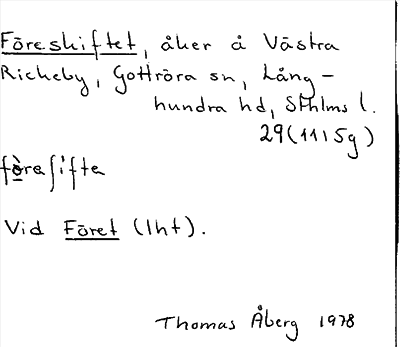 Föreskiftet, åker å Västra
Rickeby, Gottröra sn, Lång-
hundra hd, Sthlms l.
29(11I5g)
Vid Föret (lht).
Thomas Åberg 1978